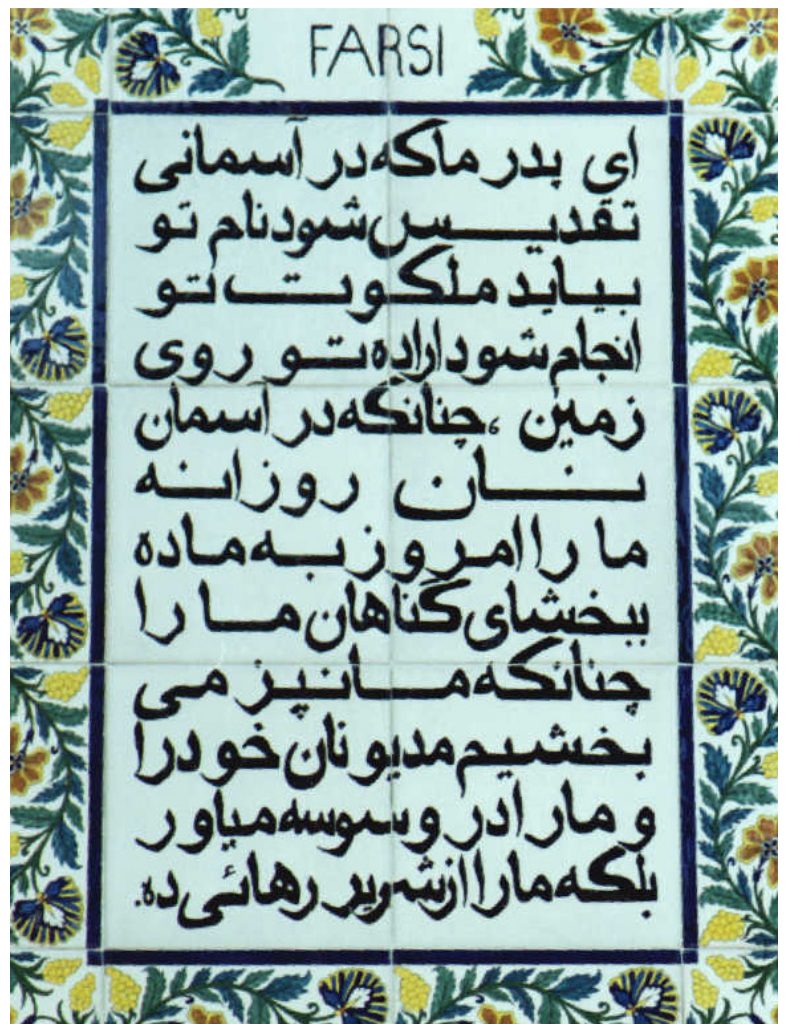 FARSI
ای پدر ماکه در آسمانی
تقدیس شود نام تو
بیاید ملکوت تو
انجام شود اراده تو روی
زمین ، چنانکه در آسمان
نان روزانه
ما را امروز به ماده
ببخشای گناهان ما را
چنانکه مانیز می
بخشیم مدیونان خودرا
و مارادر وسوسه میاور
بلکه مارا از شریر رهائی ده.